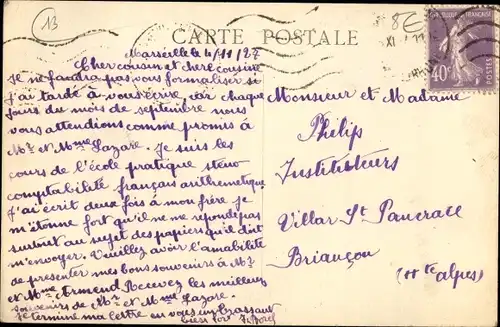 13
8E
CARTE POSTALE
REPUBLIQUE FRANCAISE
40c
POSTES
Marseille le 4/11/27
Cher cousin et chere cousine
Je ne faudra pas vous formaliser si
j'ai tardé à vous écrire car chaque
jours du mois de septembre nous
vous attendions comme promis à
Mr et Mme Lazare. Je suis les
cours de l'école pratique steno
comptabilité français arithemetique
J'ai écrit deux fois à mon frère je
m'étonne fort qu'il ne me reponde pas
surtout au sujet des papiers qu'il doit
m'envoyer. Veuillez avoir l'amabilité
de presenter mes bons souvenirs à Mr
et Mme Armend Recevez les meilleurs
souvenirs de Mr et Mme Lazare.
Je termine ma lettre en vous embrassant
bien fort
Monsieur et Madame
Phelip
Instituteurs
Villar St Pancrace
Briançon
(Htes alpes)